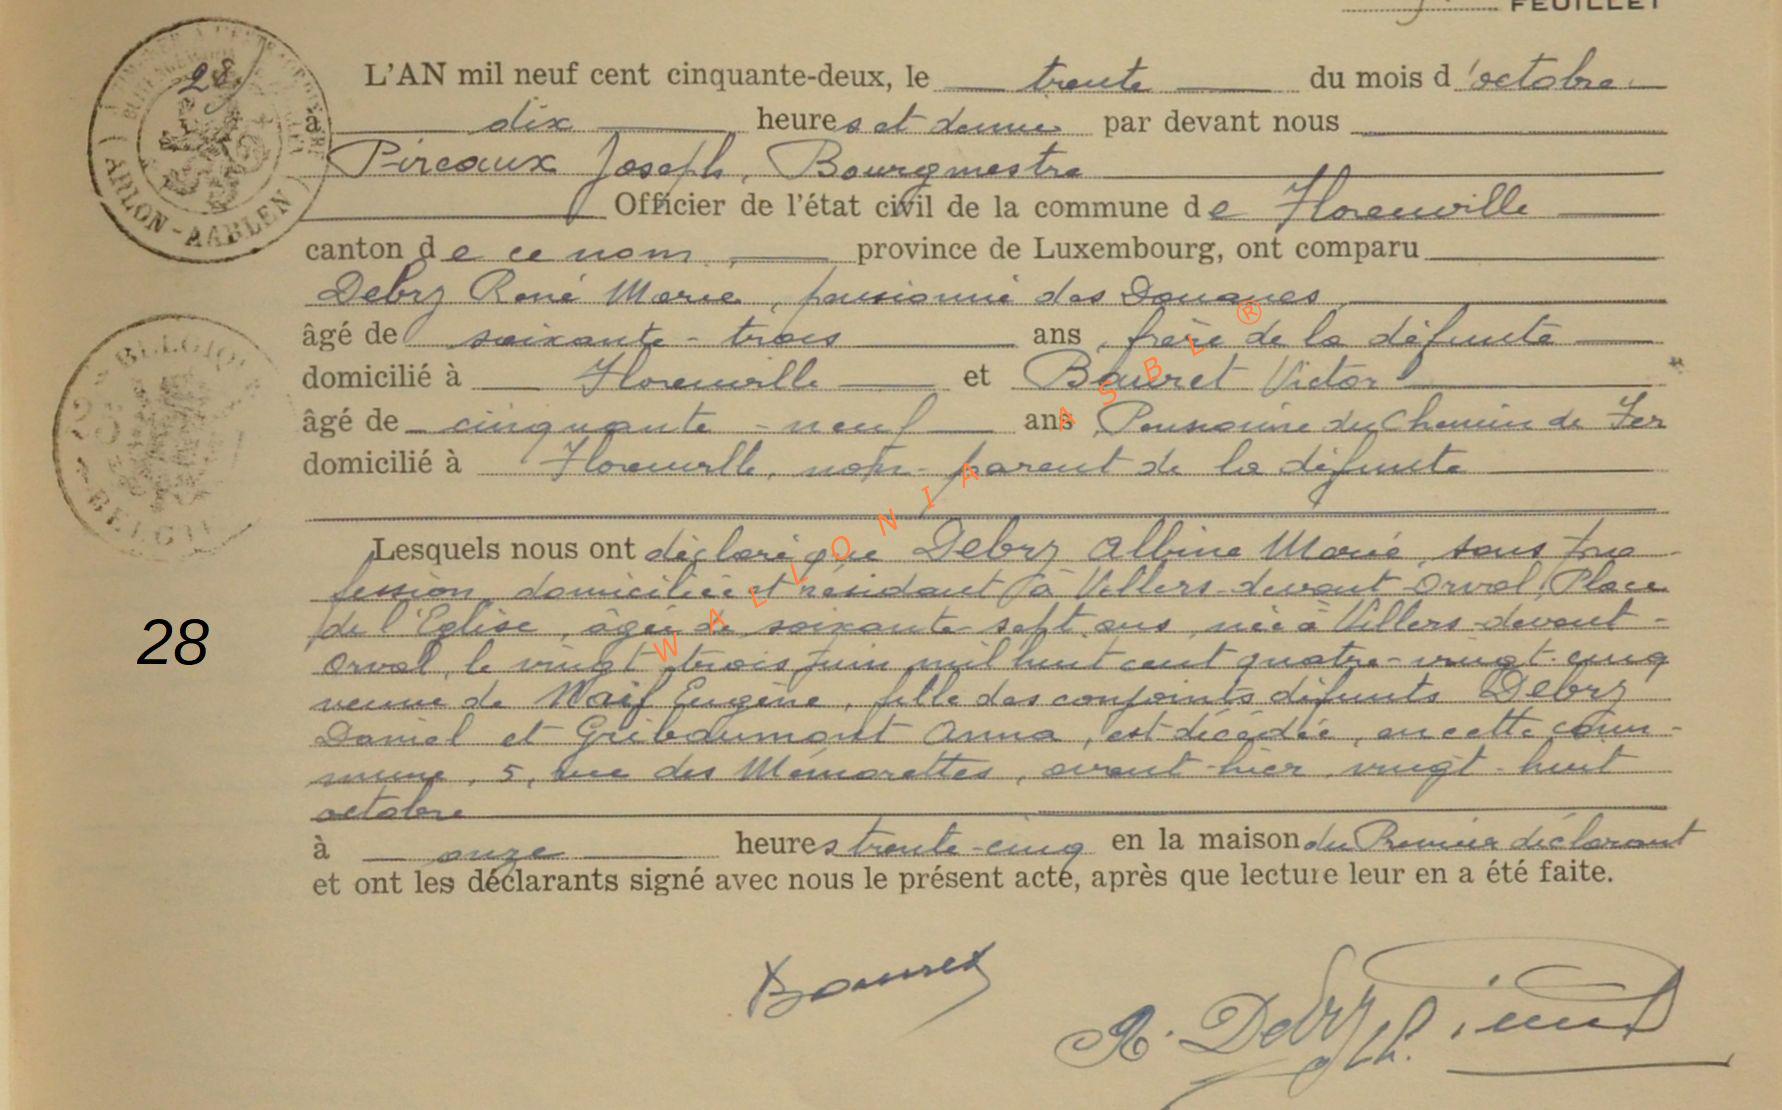 FEUILLET
28
L'AN mil neuf cent cinquante-deux, le trente du mois d'octobre
à dix heures et demie par devant nous
Pireaux Joseph, Bourgmestre
Officier de l'état civil de la commune de Florenville
canton de ce nom, province de Luxembourg, ont comparu
Debry René Marie, pensionné des Douanes,
âgé de soixante-trois ans, frère de la défunte
domicilié à Florenville et Bauret Victor
âgé de cinquante-neuf ans Pensionné du Chemin de Fer
domicilié à Florenville, non-parent de la défunte
Lesquels nous ont déclaré que Debry Albine Marie, sans pro
fession, domiciliée et résidant à Villers-devant-Orval, Place
de l'Eglise, âgée de soixante-sept ans, née à Villers-devant-
Orval, le vingt-trois juin mil huit cent quatre-vingt-cinq
veuve de Naif Eugène, fille des conjoints défunts Debry
Daniel et Gribaumont Anna, est décédée, en cette com-
mune, 5, rue des Mémorettes, avant-hier vingt-huit
octobre
à onze heures trente-cinq en la maison du Premier déclarant
et ont les déclarants signé avec nous le présent acte, après que lecture leur en a été faite.
R. Debry
ARLON-AARLEN
BELGIQUE
BELGIE
28
WALLONIA ASBL ®